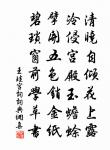 清曉自傾花上露
冷侵宮殿玉蟾蜍
擘開五色銷金紙
碧瑣窗前學草書
王珪宮詞詞典網集